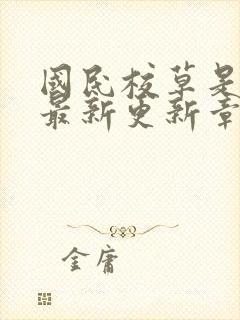 國民校草是
最新更新章
金庸